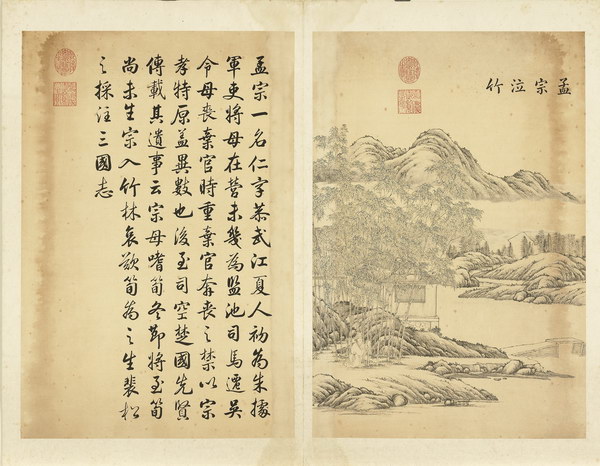 孟宗泣竹
孟宗一名仁字恭武江夏人初為朱據
軍吏將母在營未幾為監池司馬遷吳
令母喪棄官時重棄官奔喪之禁以宗
孝特原蓋異數也後至司空楚國先賢
傳載其遺事云宗母嗜筍冬節將至筍
尚未生宗入竹林哀歎筍為之生裴松
之採注三國志